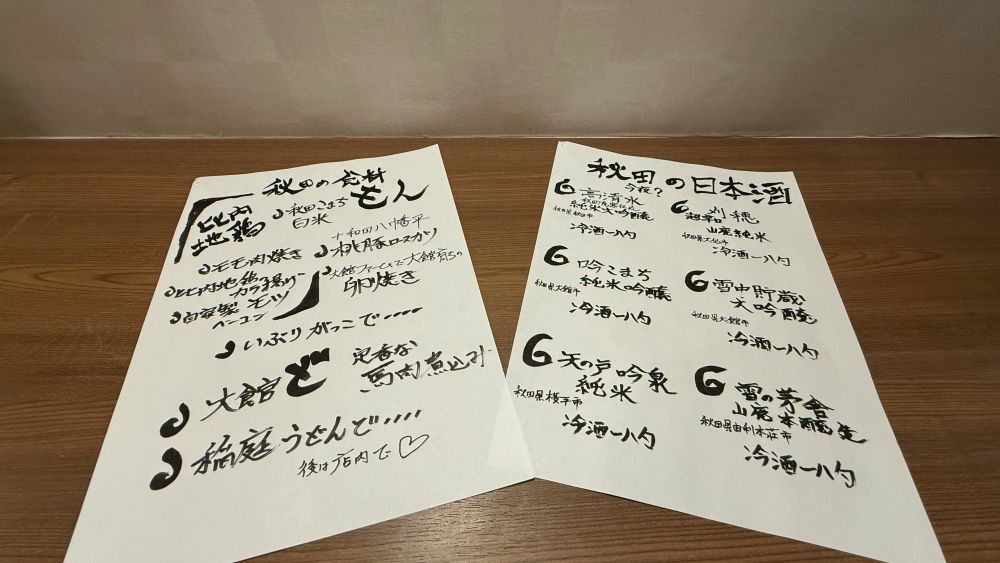 秋田の食材
もん
比内
地鶏
秋田こまち
白米
モモ肉焼き
十和田八幡平
桃豚ロースカツ
比内地鶏の
カラ揚げ
自家製モツ
ベーコン
大館ファームで大館育ちの
卵焼き
いぶりがっこで・・・・
大館ど
定番な
馬肉煮込み
稲庭うどんで・・・・
後は店内で♡
秋田の日本酒
今夜?
高清水
純米大吟醸
秋田県秋田市
冷酒一八勺
刈穂
超辛口
山廃純米
秋田県大仙市
冷酒一八勺
吟こまち
純米吟醸
秋田県大館市
冷酒一八勺
雪中貯蔵
大吟醸
秋田県大館市
冷酒一八勺
天の戸吟泉
純米
秋田県横手市
冷酒一八勺
雪の茅舎
山廃本醸造
秋田県由利本荘市
冷酒一八勺